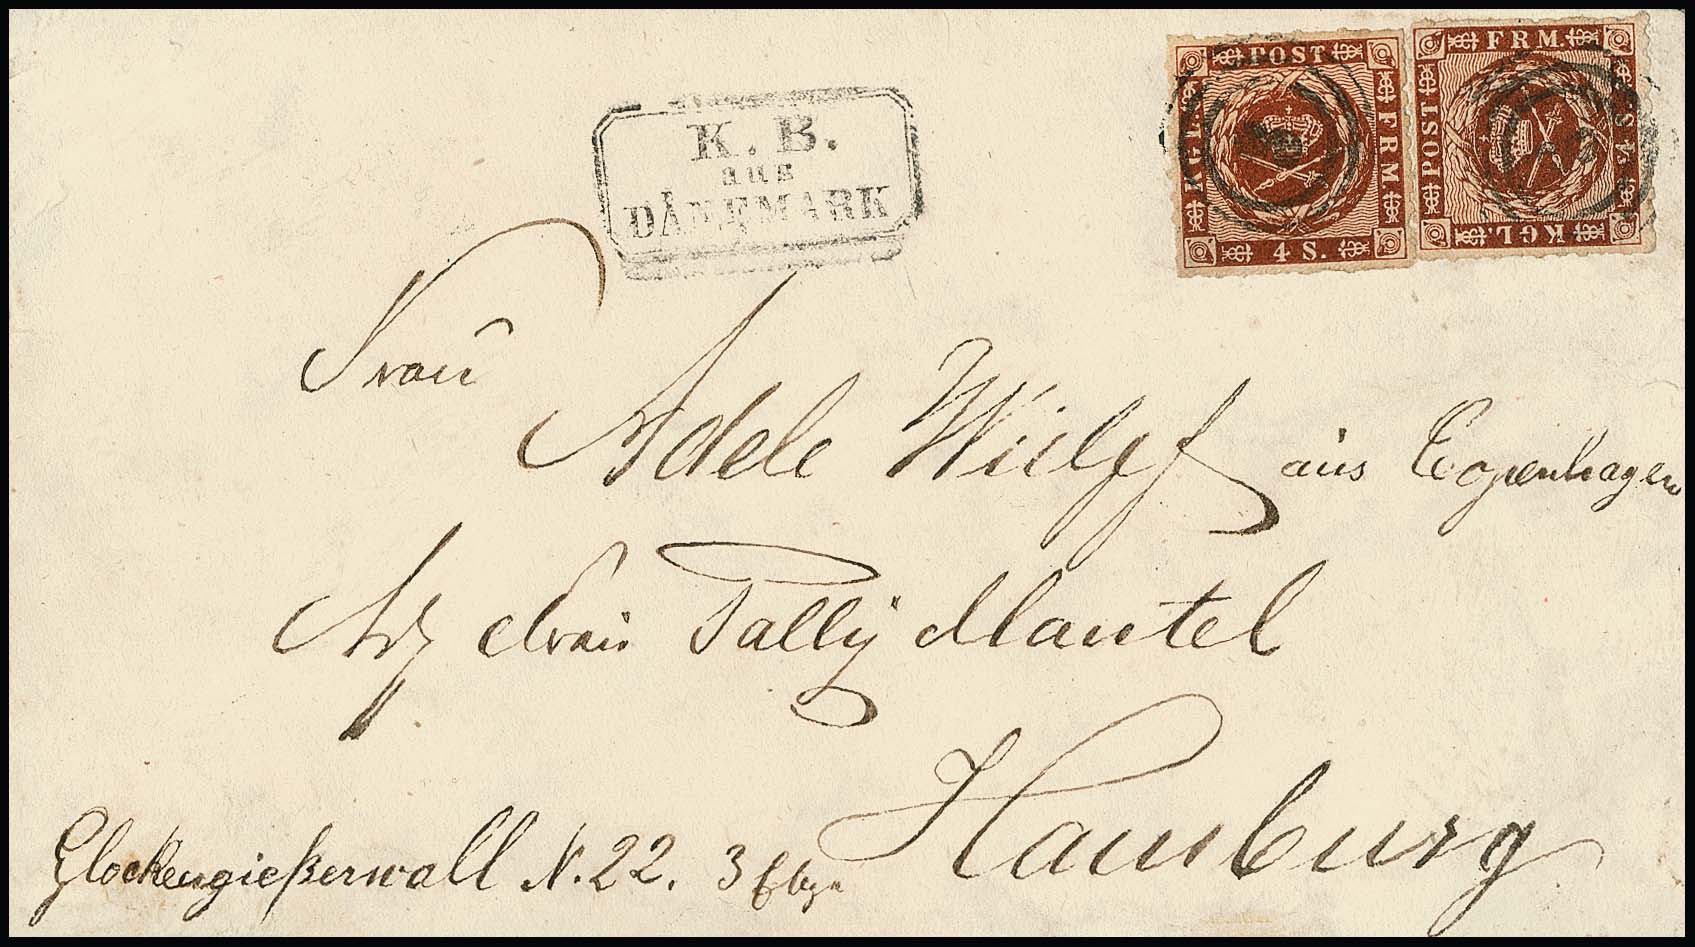 POST
KGL. FRM.
4 S.
FRM.
POST 4 S.
KGL.
K. B.
aus
DÄNEMARK
Frau
Adele Wulff aus Copenhagen
Frau Sally Mantel
Hamburg
Glockengießerwall N. 22. 3